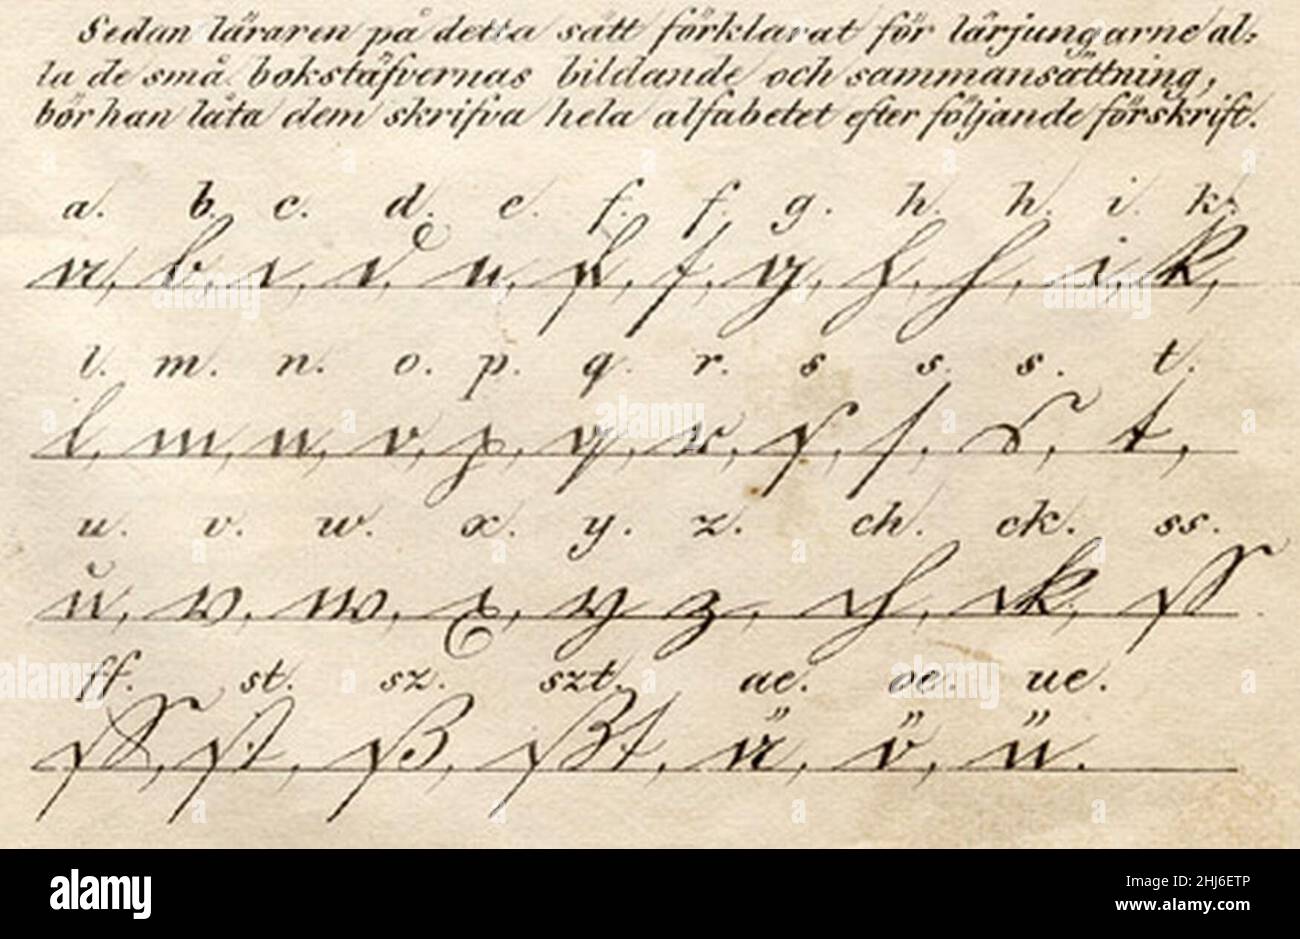 Sedan läraren på detta sätt förklarat för lärjungarne al=
la de små bokstäfvernas bildande och sammansättning,
bör han låta dem skrifva hela alfabetet efter följande förskrift.
a. b. c. d. e. f. f. g. h. h. i. k.
a, b, c, d, e, f, f, g, h, h, i, k,
l. m. n. o. p. q. r. s s. s. t.
l, m, n, o, p, q, r, s, s, s, t,
u. v. w. x. y. z. ch. ck. ss.
u, v, w, x, y, z, ch, ck, ss
ff. st. sz. szt. ae. oe. ue.
ff, st, ß, ßt, ä, ö, ü.
alamy
Image ID: 2HJ6ETP
www.alamy.com